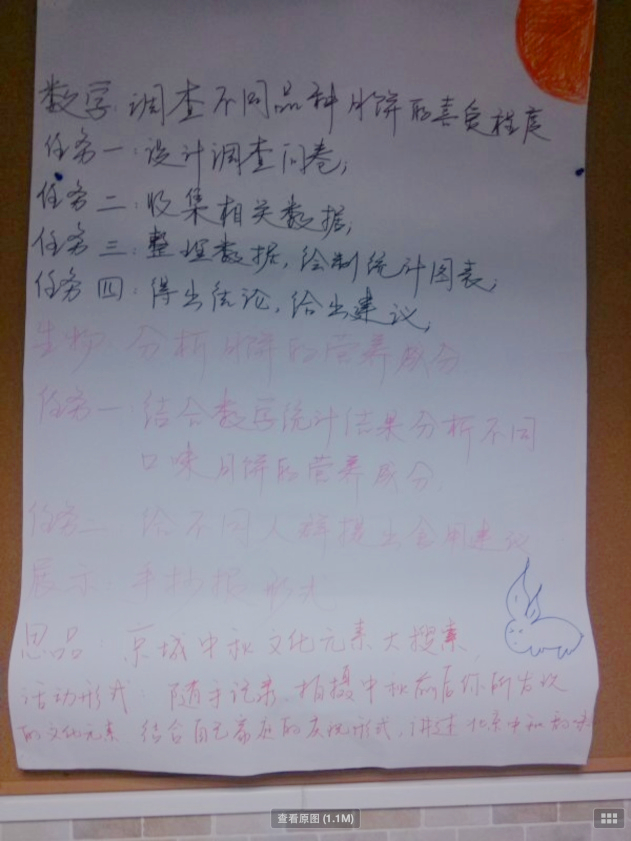 数学:调查不同品种月饼的喜爱程度
任务一:设计调查问卷;
任务二:收集相关数据;
任务三:整理数据,绘制统计图表;
任务四:得出结论,给出建议;
生物:分析月饼的营养成分.
任务一:结合数学统计结果分析不同
口味月饼的营养成分.
任务二 给不同人群提出食用建议
展示:手抄报形式
思品:京城中秋文化元素大搜索,
活动形式:随手记录,拍摄中秋前后你所发现
的文化元素 结合自己喜欢的 形式,讲述北京中秋韵味
查看原图 (1.1M)